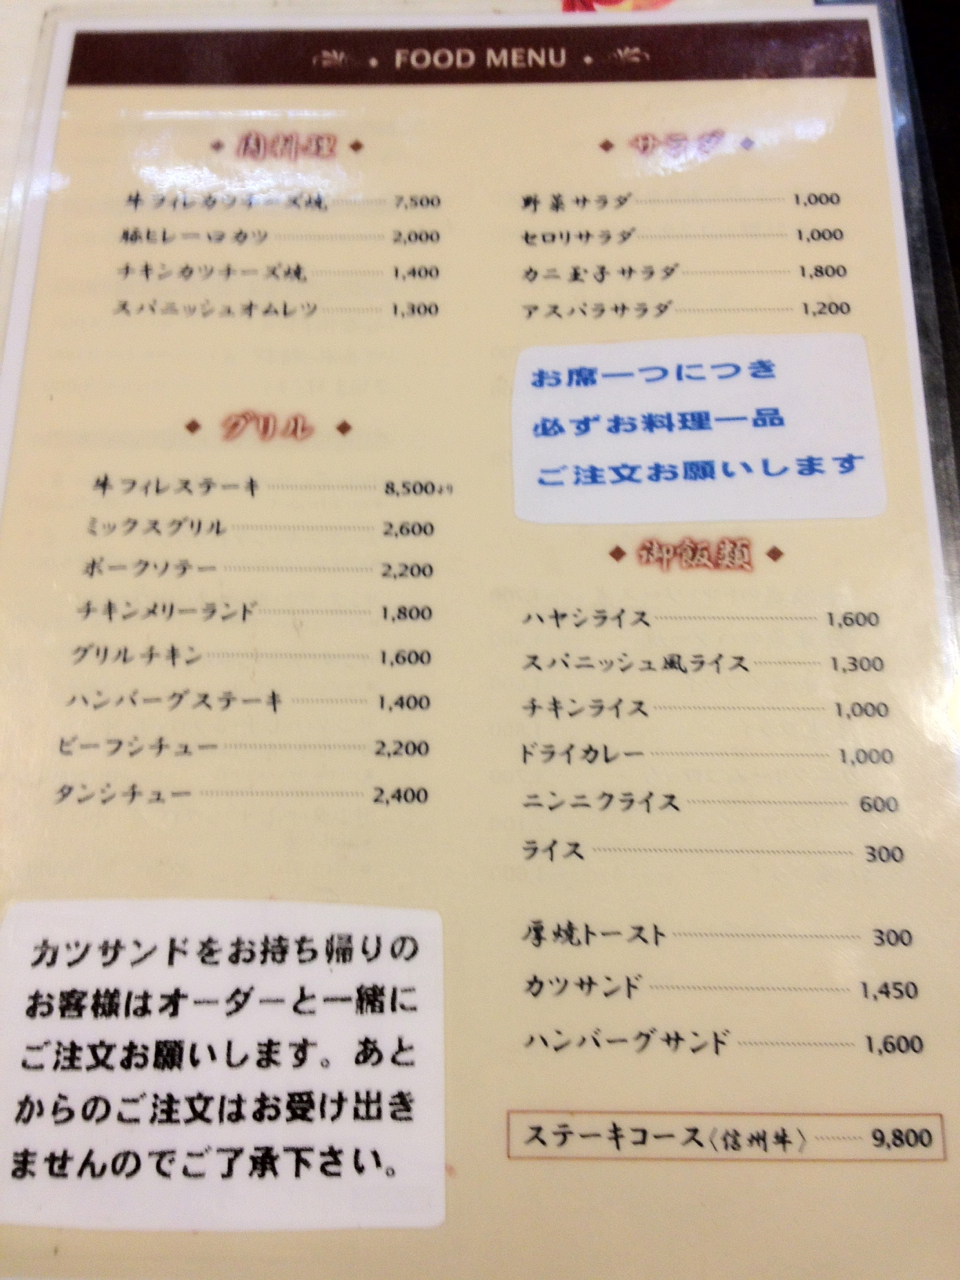 FOOD MENU
肉料理
牛フィレカツチーズ焼 7,500
豚ヒレ一口カツ 2,000
チキンカツチーズ焼 1,400
スパニッシュオムレツ 1,300
グリル
牛フィレステーキ 8,500より
ミックスグリル 2,600
ポークソテー 2,200
チキンメリーランド 1,800
グリルチキン 1,600
ハンバーグステーキ 1,400
ビーフシチュー 2,200
タンシチュー 2,400
カツサンドをお持ち帰りの
お客様はオーダーと一緒に
ご注文お願いします。あと
からのご注文はお受け出き
ませんのでご了承下さい。
サラダ
野菜サラダ 1,000
セロリサラダ 1,000
カニ玉子サラダ 1,800
アスパラサラダ 1,200
お席一つにつき
必ずお料理一品
ご注文お願いします
御飯類
ハヤシライス 1,600
スパニッシュ風ライス 1,300
チキンライス 1,000
ドライカレー 1,000
ニンニクライス 600
ライス 300
厚焼トースト 300
カツサンド 1,450
ハンバーグサンド 1,600
ステーキコース〈信州牛〉 9,800